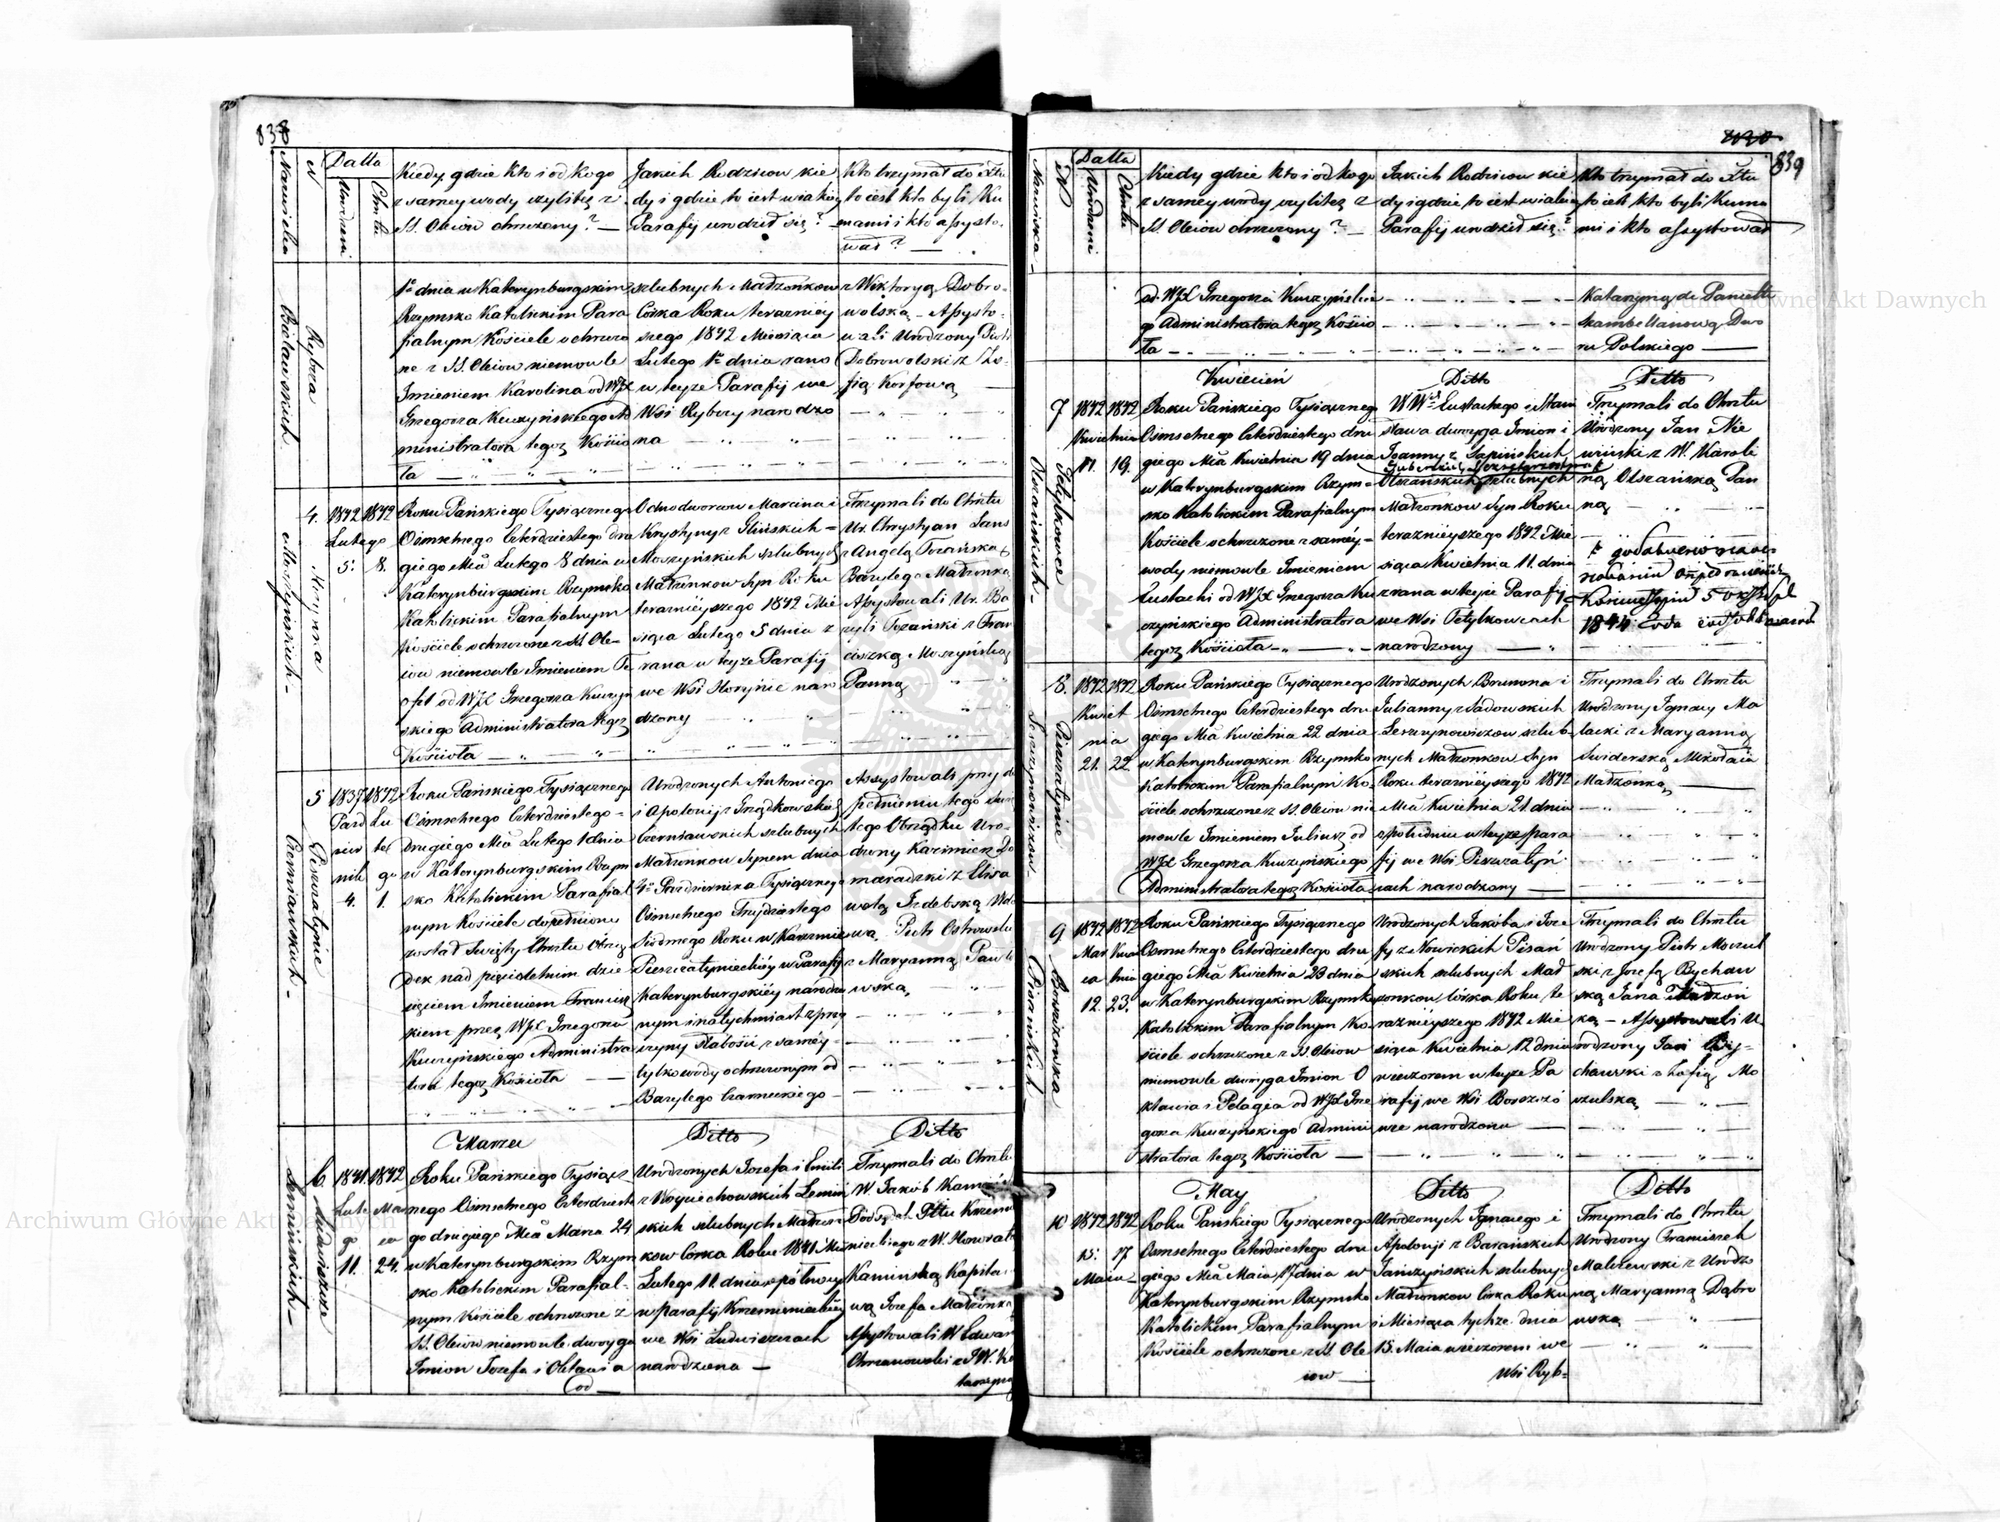 838
Nazwiska
N
Datta
Urodzeni
Chrztu
Kiedy, gdzie kto i od kogo
z samey wody czyliteż z
SS. Oleiow chrzczony? —
Jakich Rodzicow kie
dy i gdzie to iest w iakiey
Parafij urodził się?
Kto trzymał do Chrztu
to iest kto byli Ku
mami i kto assysto-
wał? —
Rybcza
1º dnia w Katerynburgskim
Rzymsko Katolickim Para
fialnym Kościele ochrzczo
ne z SS. Oleiow niemowle
Imieniem Karolina od WJX
Grzegorza Kuczyńskiego Ad
ministratora tegoż Kościo
ła
szlubnych Małżonkow
Córka Roku terazniey
szego 1842 Miesiąca
Lutego 1º dnia rano
w teyże Parafij we
Wsi Rybczy narodzo
na
z Wiktoryą Dobro-
wolską - Assysto-
wali Urodzony Piotr
Dobrowolski z Zo
fią Korfową
4.
1842 1842
Lutego
5. 8.
Horynka
Moszyńskich
Roku Pańskiego Tysiącznego
Ośmsetnego Czterdziestego dru
giego Mca Lutego 8 dnia w
Katerynburgskim Rzymsko
Katolickim Parafialnym
Kościele ochrzczone z SS. Ole-
iow niemowle Imieniem Te
ofil od WJX Grzegorza Kuczyń
skiego Administratora tegoż
Kościoła
Odnodworcow Marcina i
Krystyny z Glińskich =
Moszyńskich szlubnych
Małżonkow Syn Roku
teraznieyszego 1842 Mie
siąca Lutego 5 dnia z
rana w teyże Parafij
we Wsi Horyńce naro
dzony
Trzymali do Chrztu
Ur. Chrystyan Lans
z Angelą Tozańską
Bazylego Małżonką
Assystowali Ur. Ba
zyli Tozański z Fran
ciszką Moszyńską
Panną
5
1837 1842
Paźd Lu
zier te
nik go
4. 1.
Pieszczatynie
Czerniawskich
Roku Pańskiego Tysiącznego
Ośmsetnego Czterdziestego -
Drugiego Mca Lutego 1 dnia
w Katerynburgskim Rzym
sko Katolickim Parafial
nym Kościele dopełniony
został Swięty Chrztu Obrzę
dek nad pięcioletnim dzie
cięciem Imieniem Francisz
kiem przez WJX Grzegorza
Kuczyńskiego Administra
tora tegoż Kościoła
Urodzonych Antoniego
i Apolonij z Grządkowskich
Czerniawskich szlubnych
Małżonkow Synem dnia
4º Pazdziernika Tysiącznego
Ośmsetnego Trzydziestego
Siodmego Roku w Karczmie
Pieszczatynieckiéy w Parafij
Katerynburgskiéy narodzo
nym i natychmiast z przy
czyny słabości z saméy -
tylko wody ochrzczonym od
Bazylego Czarneckiego -
Assystowali przy do
pełnieniu tego Swię
tego Obrządku Uro-
dzony Kazimierz Do
maradzki z Elisa
wetą Izdebską Wdo
wą. Piotr Ostrowski
z Maryanną Paw
wską
Marzec
Ditto
Ditto
6
1841. 1842
Lute Mar
go ca
11. 24.
Ludwiszcze
Roku Pańskiego Tysiącz
nego Ośmsetnego Czterdziest
go drugiego Mca Marca 24
w Katerynburgskim Rzym
sko Katolickim Parafial-
nym Kościele ochrzczone z
SS. Oleiow niemowle dwoyga
Imion Jozefa i Oktawia
od —
Urodzonych Jozefa i Emilij
z Woyciechowskich Lemiń
skich szlubnych Małżon
kow Corka Roku 1841 Mca
Lutego 11. dnia z północy
w parafij Krzemienieckiey
we Wsi Ludwiszczach
narodzona —
Trzymali do Chrztu
W. Jakób Kamiński
Podsędek Pttu Krzemie
nieckiego z W. Honoratą
Kaminską Kapita
wą Jozefa Małżonką
Assystowali W. Edward
Chrzanowski z JW. Ka
tarzyną
839
Nazwiska
N
Datta
Urodzeni
Chrztu
Kiedy gdzie kto i od kogo
z samey wody czyliteż z
SS. Oleiow chrzczony? —
Jakich Rodzicow kie
dy i gdzie to iest w iakiey
Parafij urodził się?
Kto trzymał do Chrztu
to iest kto byli Kuma
mi i kto assystował
od WJX Grzegorza Kuczyńskie
go Administratora tegoż Kościo
ła
Katarzyną de Panietti
Szambellanową Dwo
ru Polskiego —
Kwiecień
Ditto
Ditto
7
1842 1842
Kwietnia
11. 19.
Tetylkowce
Olszańskich
Roku Pańskiego Tysiącznego
Ośmsetnego Czterdziestego dru
giego Mca Kwietnia 19 dnia
w Katerynburgskim Rzym=
sko Katolickim Parafialnym
Kościele ochrzczone z saméy-
wody niemowle Imieniem
Eustachi od WJX Grzegorza Ku
czyńskiego Administratora
tegoż Kościoła
WWch Eustachego i Stani
sława dwoyga Imion i
Joanny z Lapińskich
Olszańskich szlubnych
Małżonkow Syn Roku
teraznieyszego 1842 Mie
siąca Kwietnia 11. dnia
z rana w teyże Parafij
we Wsi Tetylkowcach
narodzony
Trzymali do Chrztu
Urodzony Jan Nie
wiński z W. Karoli
ną Olszańską Pan
ną
8.
1842 1842
Kwiet
nia
21. 22.
Pieszczatynie
Leszczynowiczow
Roku Pańskiego Tysiącznego
Ośmsetnego Czterdziestego dru
giego Mca Kwietnia 22 dnia
w Katerynburgskim Rzymsko
Katolickim Parafialnym Ko
ściele ochrzczone z SS. Oleiow nie
mowle Imieniem Juliusz od
WJX Grzegorza Kuczyńskiego
Administratora tegoż Kościoła
Urodzonych Brunona i
Julianny z Sadowskich
Leszczynowiczow szlub-
nych Małżonkow Syn
Roku teraznieyszego 1842
Mca Kwietnia 21. dnia
z południa w teyże para
fij we Wsi Pieszczatyń
cach narodzony —
Trzymali do Chrztu
Urodzony Ignacy Ma
lacki z Maryanną
Swiderską Mikołaia
Małżonką
9
1842 1842
Mar Kwie
ca tnia
12. 23.
Borszczowka
Pisańskich
Roku Pańskiego Tysiącznego
Ośmsetnego Czterdziestego dru
giego Mca Kwietnia 23 dnia
w Katerynburgskim Rzymsko
Katolickim Parafialnym Ko
ściele ochrzczone z SS Oleiow
niemowle dwoyga Imion O
ktawia i Pelagia od WJX Grze
gorza Kuczyńskiego Admini
stratora tegoż Kościoła —
Urodzonych Jakóba i Joze
fy z Nowickich Pisań
skich szlubnych Mał
żonkow Córka Roku te
raznieyszego 1842 Mie
siąca Kwietnia 12 dnia
wieczorem w teyże Pa
rafij we Wsi Borszczo
wce narodzona —
Trzymali do Chrztu
Urodzony Piotr Moczul
ski z Jozefą Rychaw
ską Jana Małżon
ką - Assystowali U
rodzony Jan Ry-
chawski z Zofią Mo
czulską
May
Ditto
Ditto
10
1842 1842
15. 17
Maia
Roku Pańskiego Tysiącznego
Ośmsetnego Czterdziestego dru
giego Mca Maia 17 dnia w
Katerynburgskim Rzymsko
Katolickim Parafialnym
Kościele ochrzczone z SS. Ole
iow —
Urodzonych Ignacego i
Apolonji z Barańskich
Jańczyńskich szlubnych
Małżonkow Corka Roku
i Miesiąca tychże dnia
15. Maia wieczorem we
Wsi Ryb=
Trzymali do Chrztu
Urodzony Franciszek
Malczewski z Urodzo
ną Maryanną Dąbro
wską
Archiwum Główne Akt Dawnych
Archiwum Główne Akt Dawnych